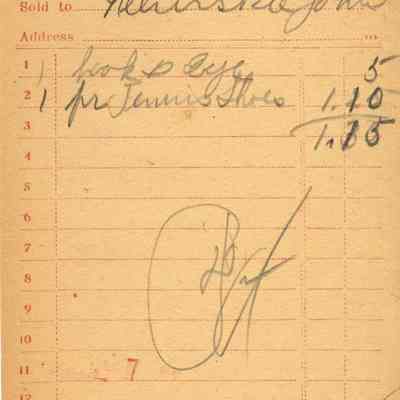 Sold to
Address
1 1 hook & Eye 5
2 1 pr Tennis Shoes 1.10
3 1.15
4
5
6
7
8
9
10
11 7
12